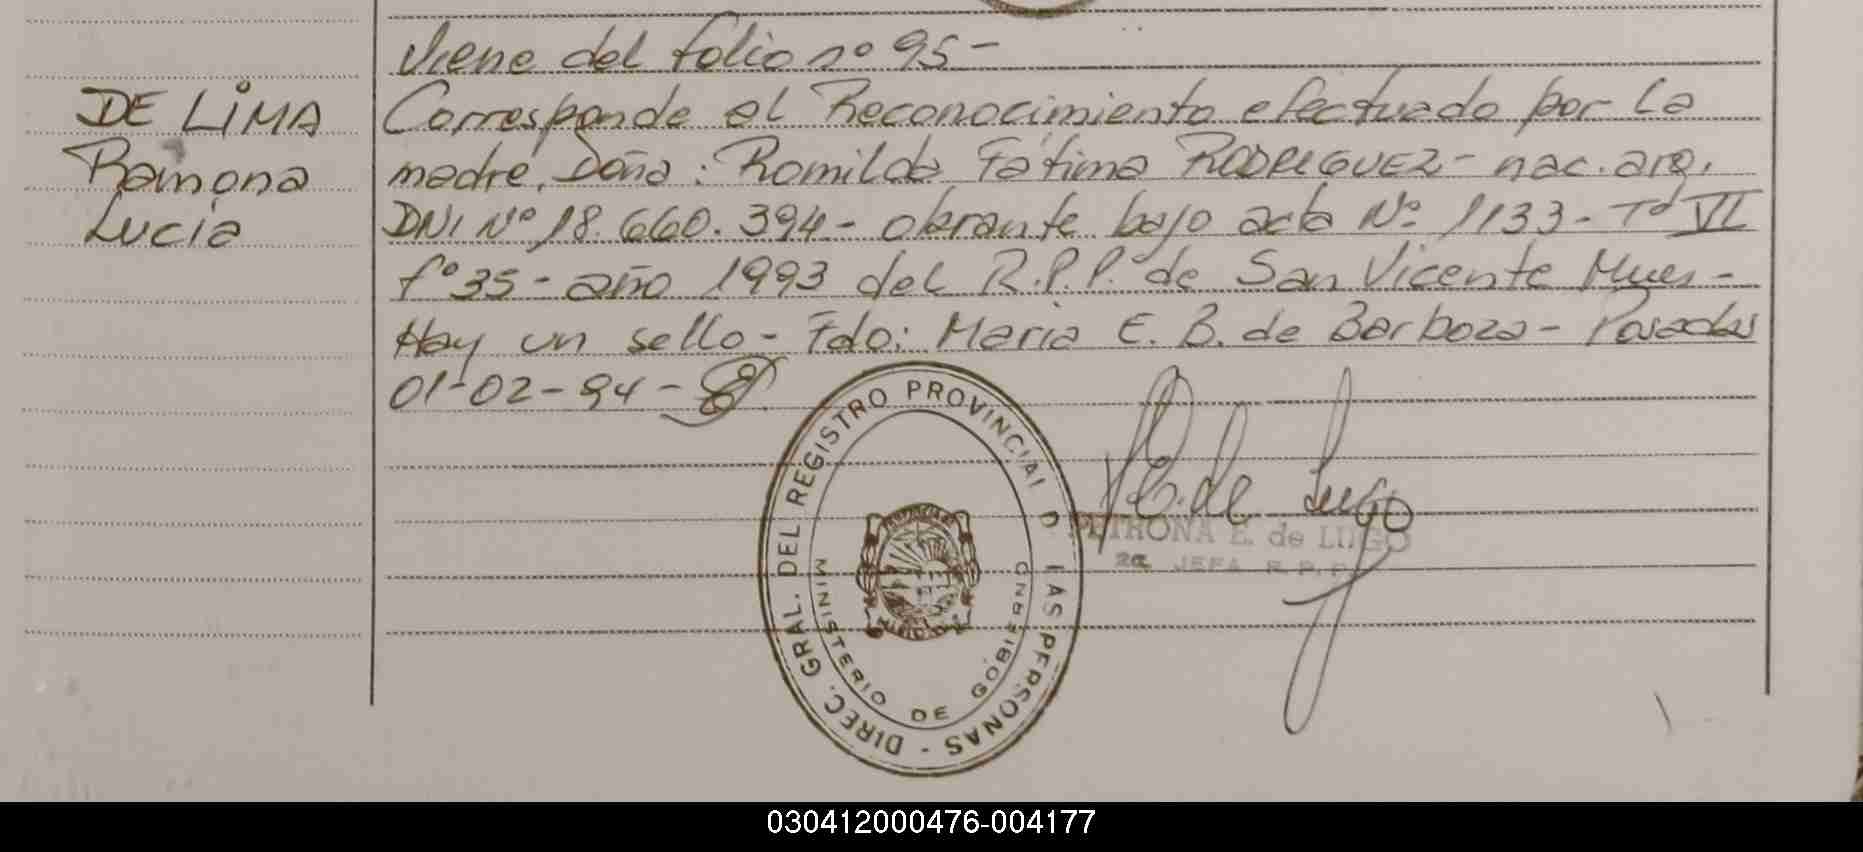 Viene del folio nº 95-
DE LIMA
Ramona
Lucia
Corresponde el Reconocimiento efectuado por la
madre, Doña: Romilda Fátima RODRIGUEZ- nac. arg.
DNI Nº 18.660.394- obrante bajo acta Nº 1133- Tº VI
fº 35- año 1993 del R.P.P. de San Vicente Mnes-
Hay un sello- Fdo: Maria E. B. de Barboza- Posadas
01-02-94-
DIREC. GRAL. DEL REGISTRO PROVINCIAL D LAS PERSONAS -
MINISTERIO DE GOBIERNO
P.E. de Lugo
PETRONA E. de LUGO
2a JEFA R.P.P.
030412000476-004177